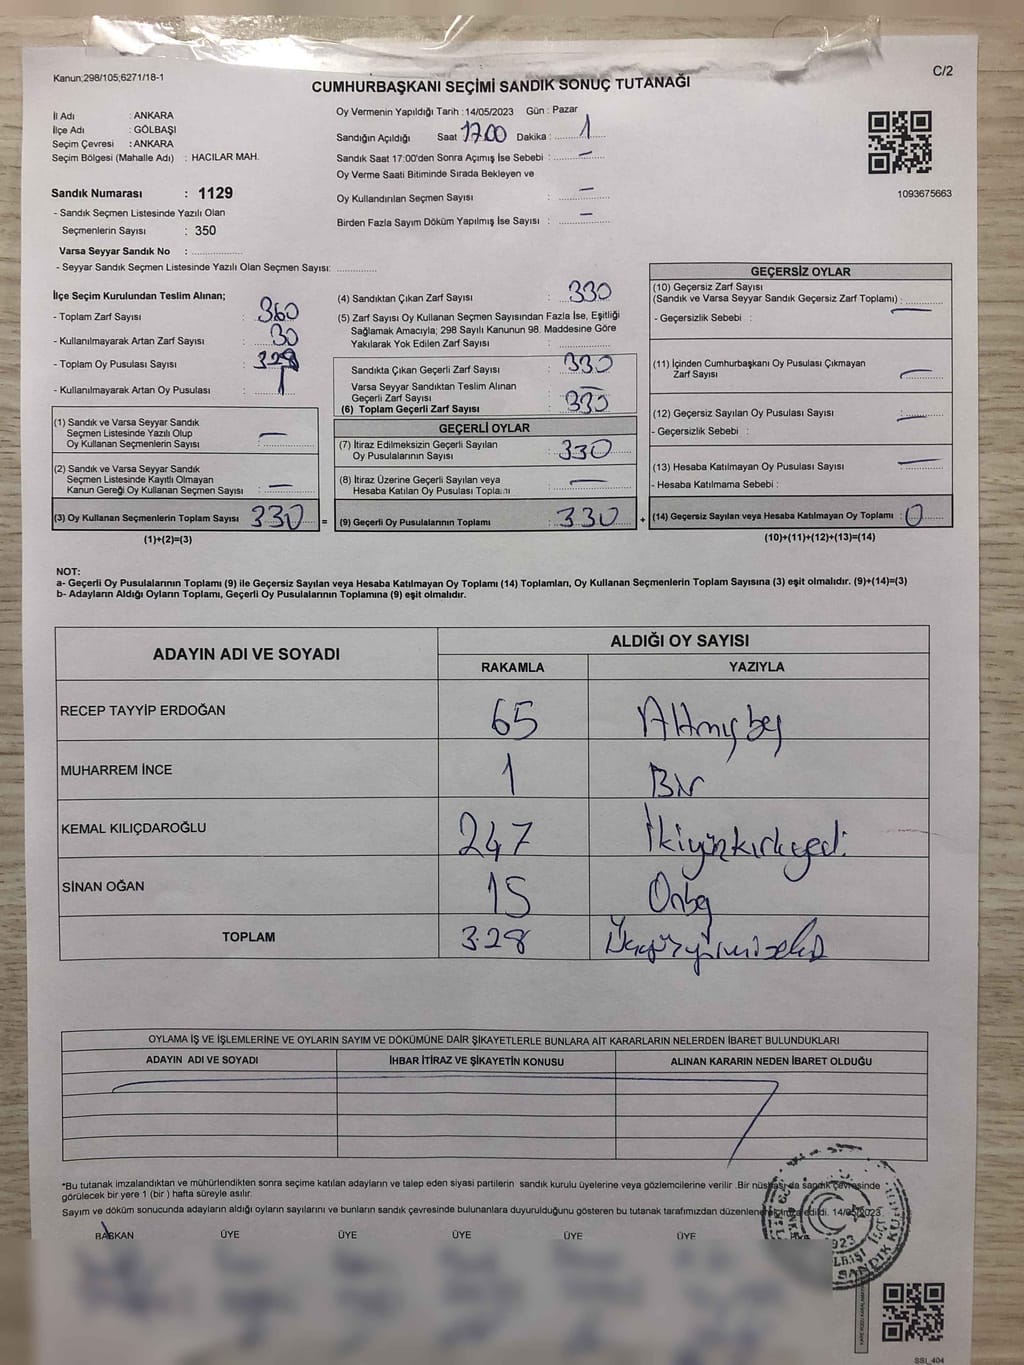 Kanun;298/105;6271/18-1
C/2
CUMHURBAŞKANI SEÇİMİ SANDIK SONUÇ TUTANAĞI
İl Adı : ANKARA
İlçe Adı : GÖLBAŞI
Seçim Çevresi : ANKARA
Seçim Bölgesi (Mahalle Adı) : HACILAR MAH.
Sandık Numarası : 1129
- Sandık Seçmen Listesinde Yazılı Olan
Seçmenlerin Sayısı : 350
Varsa Seyyar Sandık No :
- Seyyar Sandık Seçmen Listesinde Yazılı Olan Seçmen Sayısı:
Oy Vermenin Yapıldığı Tarih : 14/05/2023 Gün : Pazar
Sandığın Açıldığı Saat 17.00 Dakika : 1
Sandık Saat 17:00'den Sonra Açımış İse Sebebi : —
Oy Verme Saati Bitiminde Sırada Bekleyen ve
Oy Kullandırılan Seçmen Sayısı : —
Birden Fazla Sayım Döküm Yapılmış İse Sayısı : —
1093675663
İlçe Seçim Kurulundan Teslim Alınan;
- Toplam Zarf Sayısı : 360
- Kullanılmayarak Artan Zarf Sayısı : 30
- Toplam Oy Pusulası Sayısı :
- Kullanılmayarak Artan Oy Pusulası :
(1) Sandık ve Varsa Seyyar Sandık
Seçmen Listesinde Yazılı Olup
Oy Kullanan Seçmenlerin Sayısı : —
(2) Sandık ve Varsa Seyyar Sandık
Seçmen Listesinde Kayıtlı Olmayan
Kanun Gereği Oy Kullanan Seçmen Sayısı : —
(3) Oy Kullanan Seçmenlerin Toplam Sayısı 330
(1)+(2)=(3)
=
(4) Sandıktan Çıkan Zarf Sayısı : 330
(5) Zarf Sayısı Oy Kullanan Seçmen Sayısından Fazla İse, Eşitliği
Sağlamak Amacıyla; 298 Sayılı Kanunun 98. Maddesine Göre
Yakılarak Yok Edilen Zarf Sayısı :
Sandıkta Çıkan Geçerli Zarf Sayısı : 330
Varsa Seyyar Sandıktan Teslim Alınan
Geçerli Zarf Sayısı : —
(6) Toplam Geçerli Zarf Sayısı : 330
GEÇERLİ OYLAR
(7) İtiraz Edilmeksizin Geçerli Sayılan
Oy Pusulalarının Sayısı : 330
(8) İtiraz Üzerine Geçerli Sayılan veya
Hesaba Katılan Oy Pusulası Toplamı : —
(9) Geçerli Oy Pusulalarının Toplamı : 330
+
GEÇERSİZ OYLAR
(10) Geçersiz Zarf Sayısı
(Sandık ve Varsa Seyyar Sandık Geçersiz Zarf Toplamı) : —
- Geçersizlik Sebebi :
(11) İçinden Cumhurbaşkanı Oy Pusulası Çıkmayan
Zarf Sayısı : —
(12) Geçersiz Sayılan Oy Pusulası Sayısı : —
- Geçersizlik Sebebi :
(13) Hesaba Katılmayan Oy Pusulası Sayısı : —
- Hesaba Katılmama Sebebi :
(14) Geçersiz Sayılan veya Hesaba Katılmayan Oy Toplamı : 0
(10)+(11)+(12)+(13)=(14)
NOT:
a- Geçerli Oy Pusulalarının Toplamı (9) ile Geçersiz Sayılan veya Hesaba Katılmayan Oy Toplamı (14) Toplamları, Oy Kullanan Seçmenlerin Toplam Sayısına (3) eşit olmalıdır. (9)+(14)=(3)
b- Adayların Aldığı Oyların Toplamı, Geçerli Oy Pusulalarının Toplamına (9) eşit olmalıdır.
ADAYIN ADI VE SOYADI
ALDIĞI OY SAYISI
RAKAMLA YAZIYLA
RECEP TAYYİP ERDOĞAN 65 Altmışbeş
MUHARREM İNCE 1 Bir
KEMAL KILIÇDAROĞLU 247 İkiyüzkırkyedi
SİNAN OĞAN 15 Onbeş
TOPLAM 328 Üçyüzyirmisekiz
OYLAMA İŞ VE İŞLEMLERİNE VE OYLARIN SAYIM VE DÖKÜMÜNE DAİR ŞİKAYETLERLE BUNLARA AİT KARARLARIN NELERDEN İBARET BULUNDUKLARI
ADAYIN ADI VE SOYADI İHBAR İTİRAZ VE ŞİKAYETİN KONUSU ALINAN KARARIN NEDEN İBARET OLDUĞU
*Bu tutanak imzalandıktan ve mühürlendikten sonra seçime katılan adayların ve talep eden siyasi partilerin sandık kurulu üyelerine veya gözlemcilerine verilir .Bir nüshası da sandık çevresinde
görülecek bir yere 1 (bir ) hafta süreyle asılır.
Sayım ve döküm sonucunda adayların aldığı oyların sayılarını ve bunların sandık çevresinde bulunanlara duyurulduğunu gösteren bu tutanak tarafımızdan düzenlenerek imza edildi. 14/05/2023
BAŞKAN ÜYE ÜYE ÜYE ÜYE ÜYE ÜYE
SSI_404